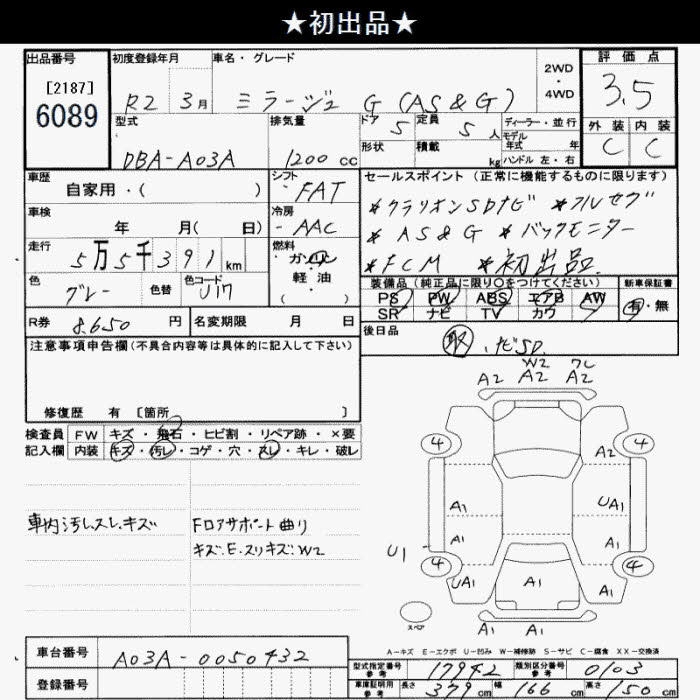 ★初出品★
出品番号
[2187]
6089
初度登録年月
R2 3月
車名・グレード
ミラージュ G (AS&G)
2WD
・
4WD
評価点
3.5
外装 内装
C C
型式
DBA-A03A
排気量
1200 cc
ドア 5
定員 5 人
形状
積載 kg
ディーラー・並行
モデル
年式 年
ハンドル 左・右
車歴
自家用・( )
シフト
FAT
車検
年 月( 日)
冷房
AAC
走行
5万5千391 km
燃料
ガソリン
軽・油
( )
色
グレー
色替
色コード
U17
セールスポイント(正常に機能するものに限ります)
*クラリオンSDナビ *フルセグ
*AS&G *バックモニター
*FCM *初出品.
装備品(純正品に限り○をつけてください)
PS PW ABS エアB AW
SR ナビ TV カワ
新車保証書
有・無
R券
8.650 円
名変期限 月 日
後日品
取 ナビSD
注意事項申告欄(不具合内容等は具体的に記入して下さい)
修復歴 有 [箇所 ]
検査員
記入欄
FW キズ・飛石・ヒビ割・リペア跡・×要
内装 キズ・汚レ・コゲ・穴・スレ・キレ・破レ
車内汚レ.スレ.キズ
Fロアサポート曲り
キズ.E.スリキズ.W2
W2 ワレ
A2 A2 A2
4 4
A2
A1 UA1
A1 A1
U1
4 4
UA1 A1 A1 A1
スペア
A1 A1
A-キズ E-エクボ U-凹み W-補修跡 S-サビ C-腐食 XX-交換済
車台番号
A03A-0050432
登録番号
型式指定番号
参考
17942
類別区分番号
参考
0103
車庫証明用
参考
長さ 379 cm 幅 166 cm 高さ 150 cm